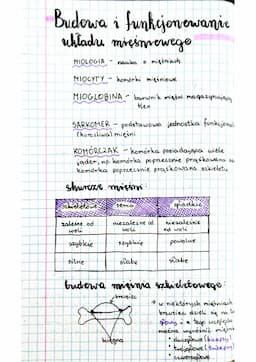 Budowa i funkcjonowanie
układu mięśniowego
MIOLOGIA - nauka o mięśniach
MIOCYTY - komórki mięśniowe
MIOGLOBINA - barwnik mięśni magazynujący
tlen
SARKOMER - podstawowa jednostka funkcjonal
(kurczliwa) mięśni
KOMÓRCZAK - komórka posiadająca wiele
jąder, np. komórka poprzecznie prążkowana se
komórka poprzecznie prążkowana szkieletu
skurcze mięśni:
szkieletowe serca gładkie
zależne od woli niezależne od woli niezależne od woli
szybkie szybkie powolne
silne słabe słabe
budowa mięśnia szkieletowego:
brzusiec
w niektórych mięśniach
brzusiec dzieli się na
głowy
względu
można wyróżnić mięśn
dwugłowe (biceps)
trójgłowe (triceps)
czworogłowe